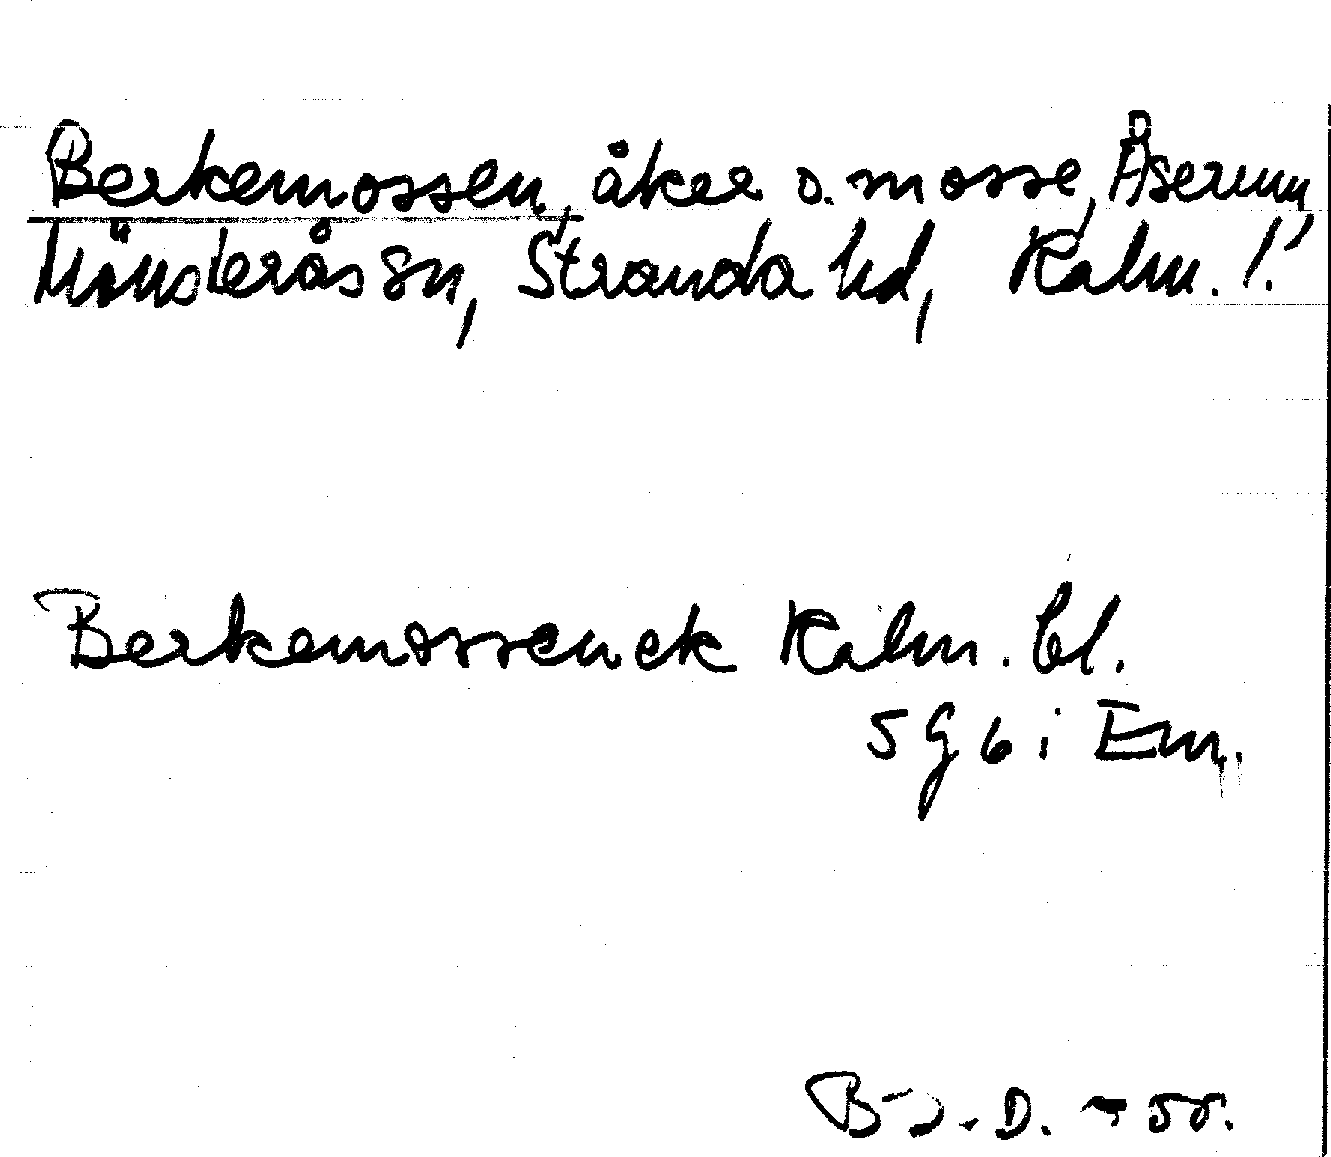 Berkemossen, åker o. mosse, Åserum,
Mönsterås sn, Stranda hd, Kalm. l.
Berkemossen ek Kalm. bl.
5 G 6 i Em.
B-J. D. -55.